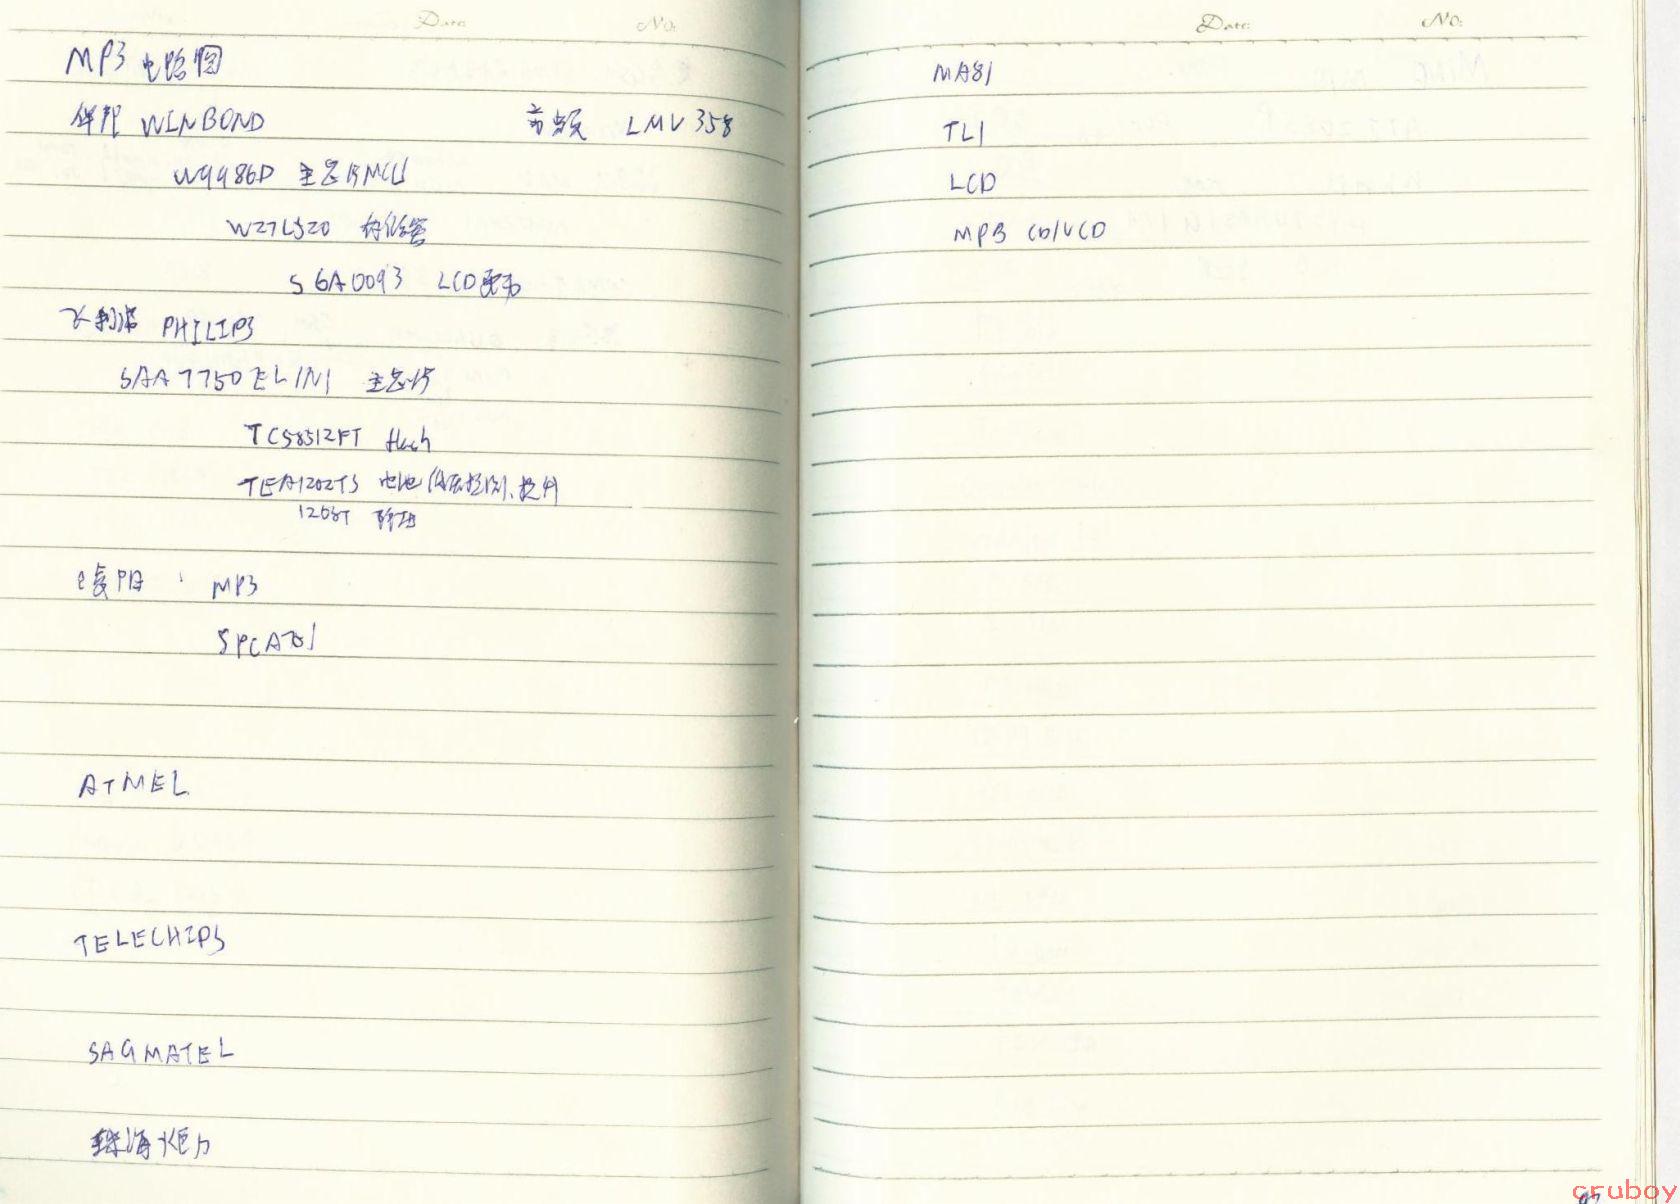 Date: No:
MP3 电路图
华邦 WINBOND 音频 LMV358
W9986D 主芯片MCU
W27L520 存储器
S6A0093 LCD驱动
飞利浦 PHILIPS
SAA7750EL1N1 主芯片
TC58512FT flash
TEA1202TS 电池低压检测、提升
125ST
凌阳: MP3
SPCA751
ATMEL
TELECHIPS
SAGMATEL
珠海炬力
Date: No:
MA81
TLI
LCD
MPB CD/VCD
cruboy